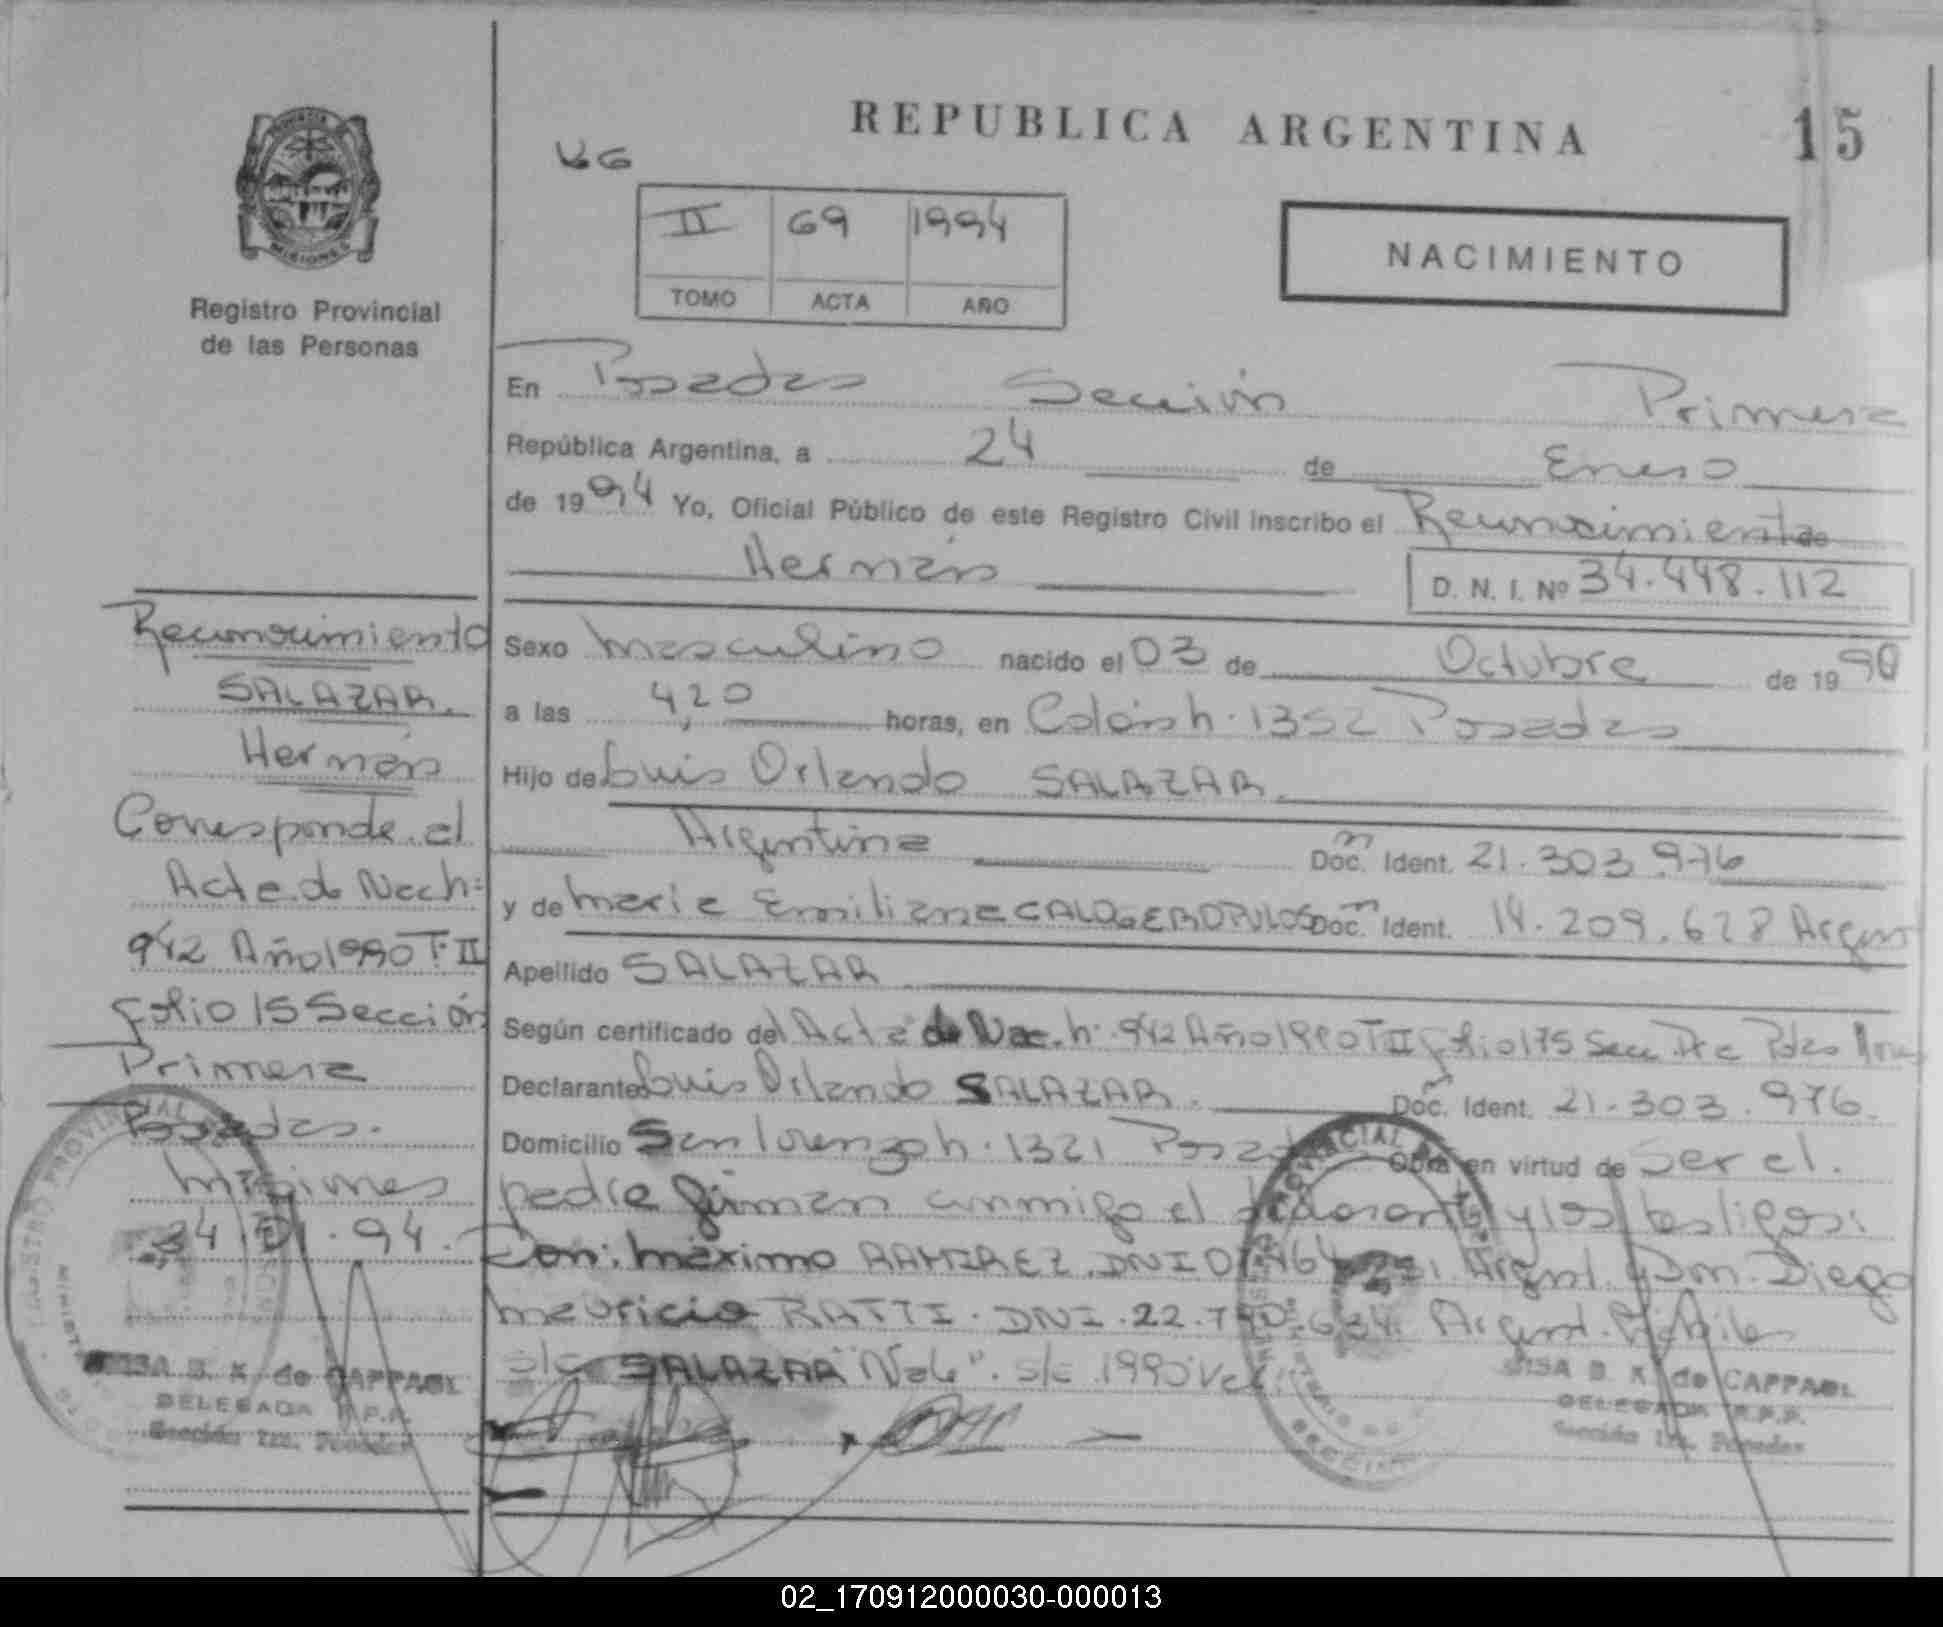 REPUBLICA ARGENTINA
15
PROVINCIA
MISIONES
Registro Provincial
de las Personas
II 69 1994
TOMO ACTA AÑO
NACIMIENTO
En Posadas Sección Primera
República Argentina, a 24 de Enero
de 1994 Yo, Oficial Público de este Registro Civil inscribo el Reconocimiento de
Hernán
D. N. I. Nº 34.448.112
Sexo masculino nacido el 03 de Octubre de 1990
a las 4,20 horas, en Colón h. 1352 Posadas
Hijo de Luis Orlando SALAZAR
Argentina Doc. Ident. 21.303.976
y de María Emiliana CALOGEROPULOS Doc. Ident. 14.209.628 Argent
Apellido SALAZAR
Según certificado del Acta de Nac. h. 942 Año 1990 T II folio 175 Secc. Pra Pdas
Declarante Luis Orlando SALAZAR. Doc. Ident. 21.303.976.
Domicilio San Lorenzo h. 1321 Obra en virtud de Ser el
padre firman conmigo el declarante y los testigos:
Don: Máximo RAMIREZ. DNI Argent. y Don. Diego
Mauricio RATTI. DNI. 22.790.634. Argent.
s/c SALAZAR "Vale". s/c 1990
Reconocimiento
SALAZAR.
Hernán
Corresponde al
Acta de Nac h:
942 Año 1990 T. II
folio 15 Sección
Primera
Posadas.
Misiones
24.01.94.
B. K. de CAPPAGL
DELEGADA R.P.P.
Sección 1ra. Posadas
B. K. de CAPPAGL
DELEGADA R.P.P.
Sección 1ra. Posadas
02_170912000030-000013